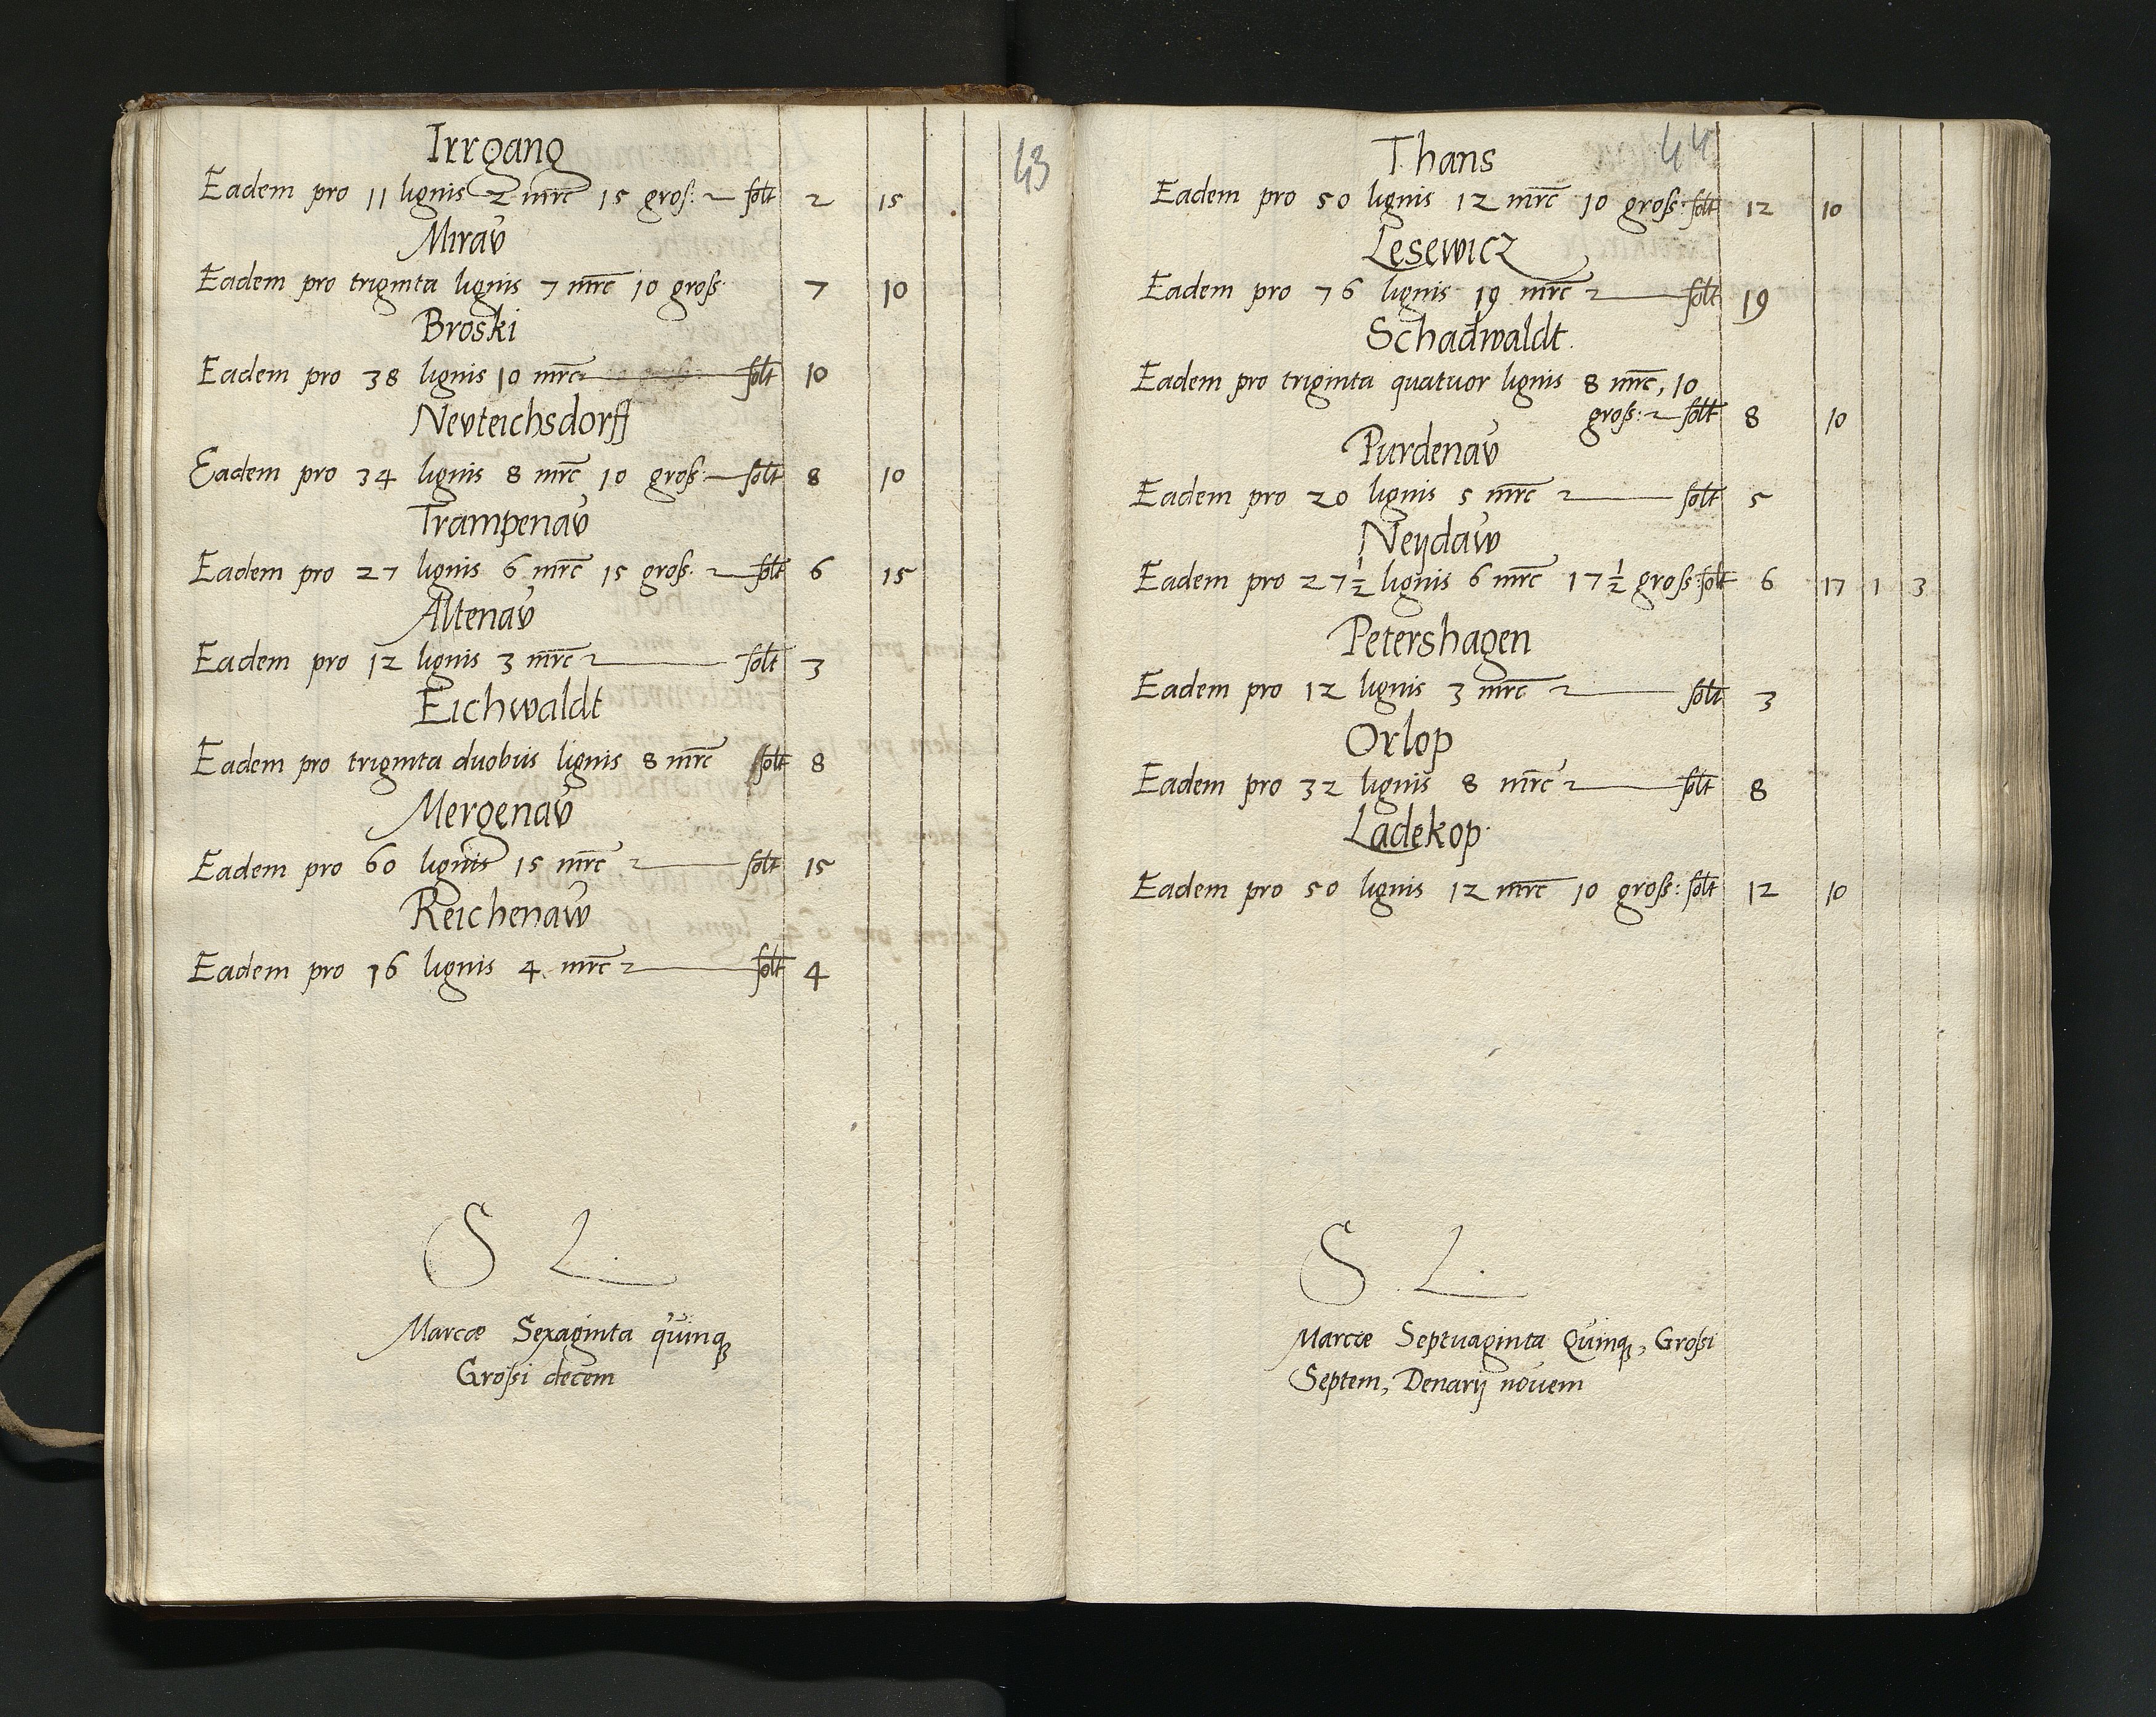 43
Irrgang
Eadem pro 11 lignis 2 mrc 15 gros: solt 2 15
Mirau
Eadem pro triginta lignis 7 mrc 10 gross 7 10
Broski
Eadem pro 38 lignis 10 mrc solt 10
Neuteichsdorff
Eadem pro 34 lignis 8 mrc 10 gross solt 8 10
Trampenau
Eadem pro 27 lignis 6 mrc 15 gross. solt 6 15
Altenau
Eadem pro 12 lignis 3 mrc solt 3
Eichwaldt
Eadem pro triginta duobus lignis 8 mrc solt 8
Mergenau
Eadem pro 60 lignis 15 mrc solt 15
Reichenaw
Eadem pro 16 lignis 4 mrc solt 4
S L.
Marcæ Sexaginta quinq
Grossi decem
44
Thans
Eadem pro 50 lignis 12 mrc 10 gross: solt 12 10
Lesewicz
Eadem pro 76 lignis 19 mrc solt 19
Schadwaldt.
Eadem pro triginta quatuor lignis 8 mrc, 10
gross: solt 8 10
Purdenau
Eadem pro 20 lignis 5 mrc solt 5
Neydaw
Eadem pro 27 ½ lignis 6 mrc 17 ½ gross: solt 6 17 1 3
Petershagen
Eadem pro 12 lignis 3 mrc solt 3
Orlop
Eadem pro 32 lignis 8 mrc solt 8
Ladekop.
Eadem pro 50 lignis 12 mrc 10 gross: solt 12 10
S L.
Marcæ Septuaginta Quinq, Grossi
Septem, Denarij nouem